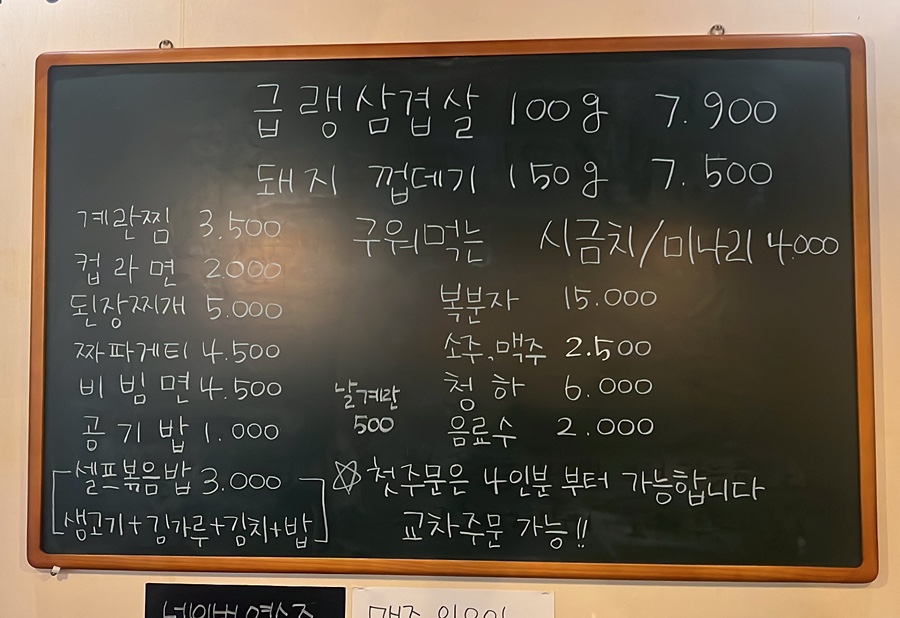 급랭삼겹살 100g 7.900
돼지 껍데기 150g 7.500
구워먹는 시금치/미나리 4.000
계란찜 3.500
컵라면 2000
된장찌개 5.000
짜파게티 4.500
비빔면 4.500
공기밥 1.000
셀프볶음밥 3.000
생고기+김가루+김치+밥
날계란
500
복분자 15.000
소주,맥주 2.500
청하 6.000
음료수 2.000
☆첫주문은 4인분 부터 가능합니다
교차주문 가능!!